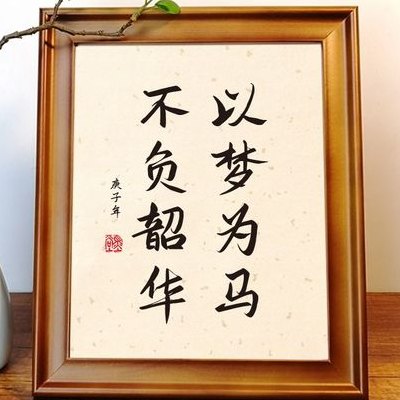 以梦为马
不负韶华
庚子年